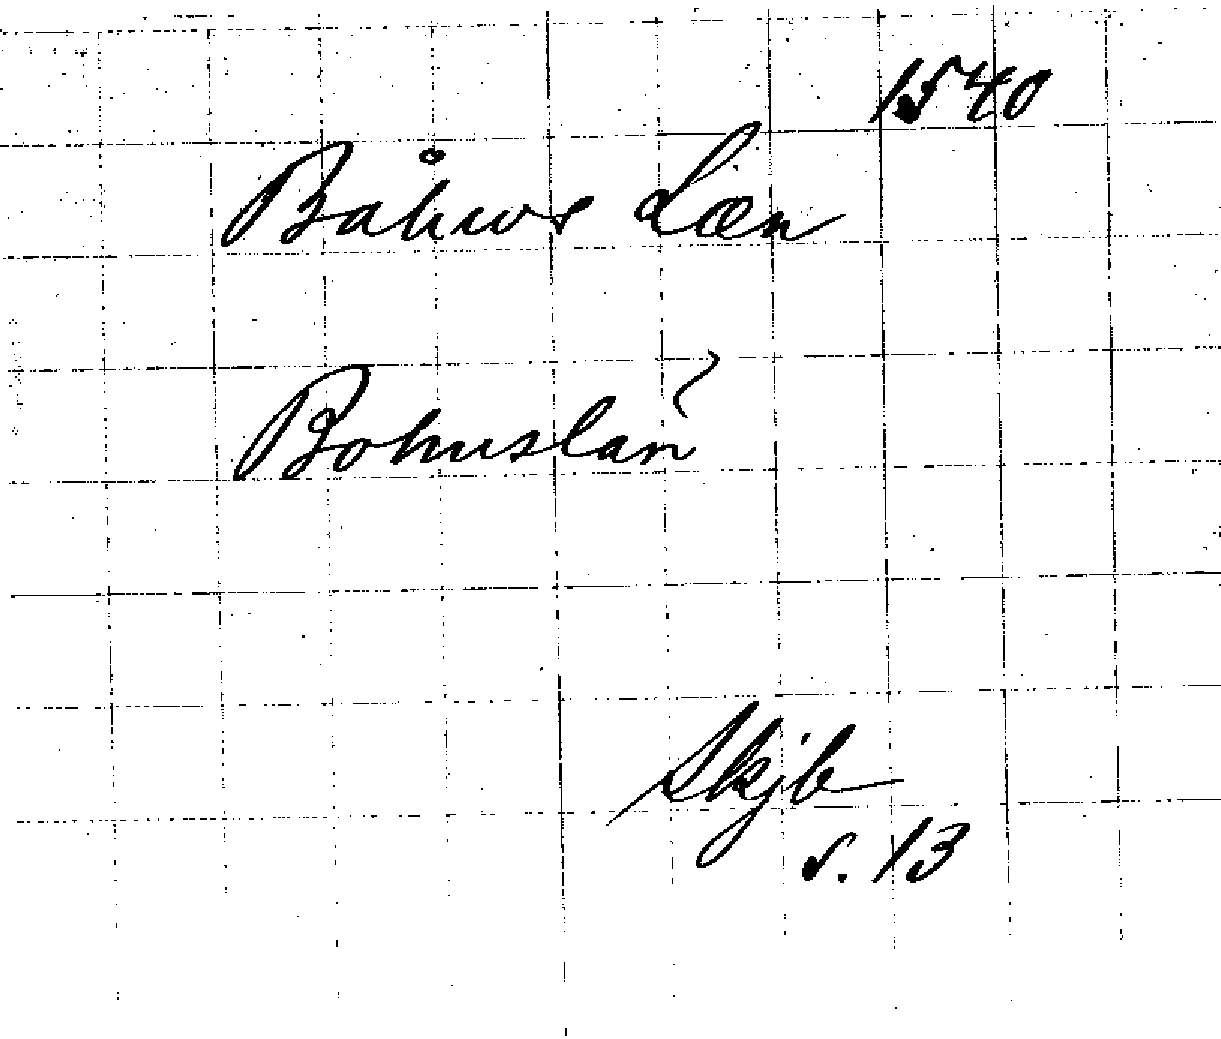 1540
Båhws Læn
Bohuslän
Skjb
s. 13